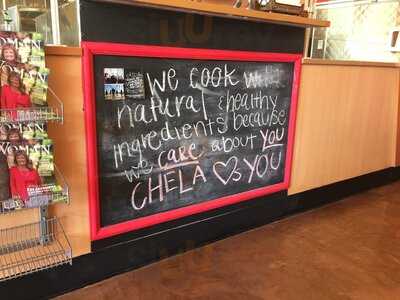 WOMAN
we cook with
natural & healthy
ingredients because
we CARE about YOU
CHELA ♡'s YOU